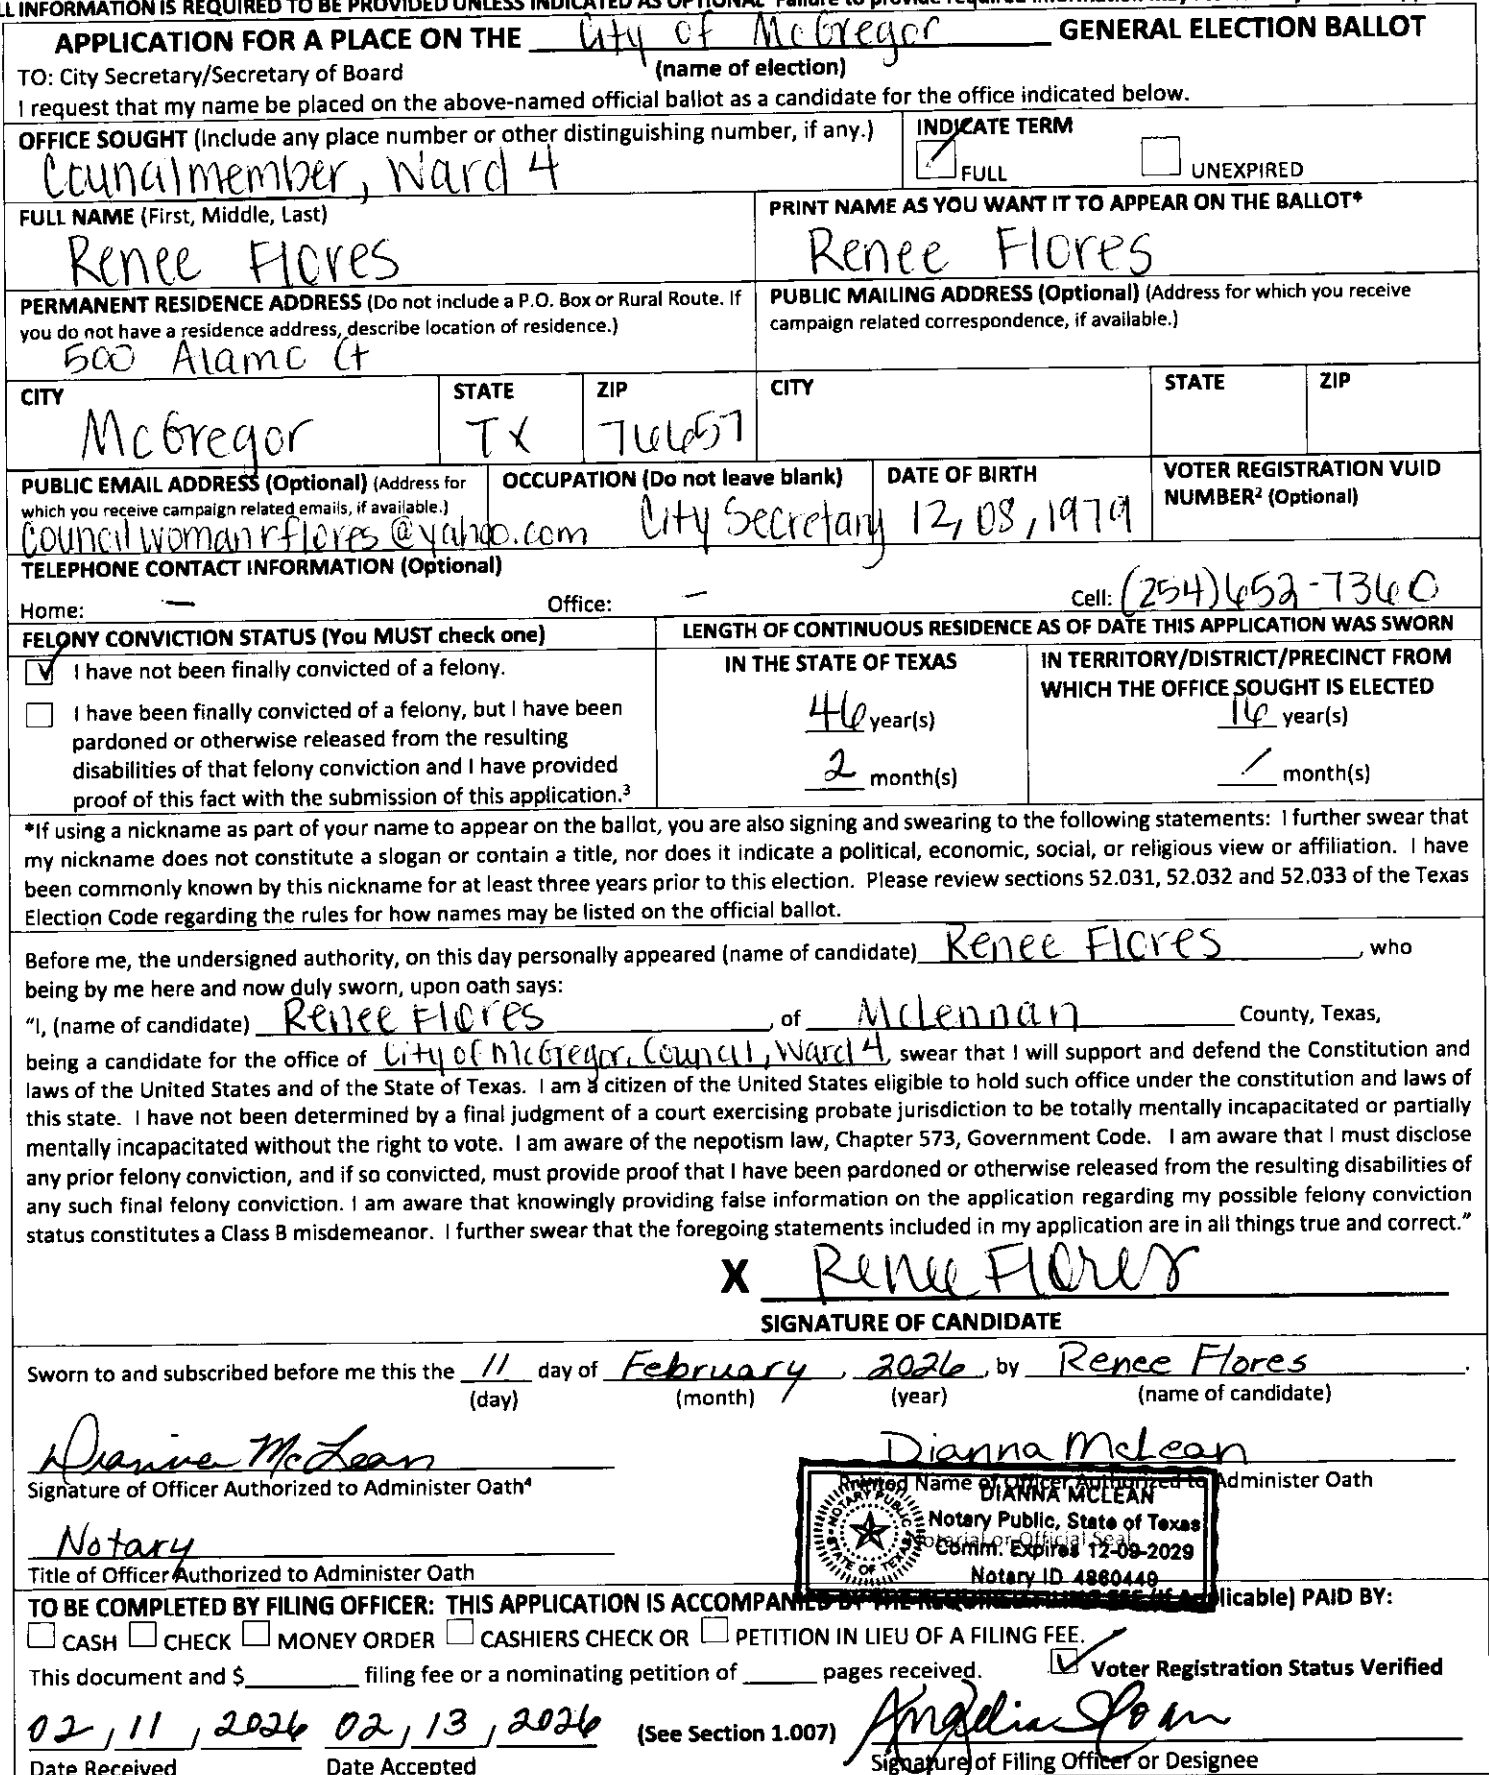 ALL INFORMATION IS REQUIRED TO BE PROVIDED UNLESS INDICATED AS OPTIONAL
APPLICATION FOR A PLACE ON THE City of McGregor GENERAL ELECTION BALLOT
TO: City Secretary/Secretary of Board (name of election)
I request that my name be placed on the above-named official ballot as a candidate for the office indicated below.
OFFICE SOUGHT (Include any place number or other distinguishing number, if any.)
Councilmember, Ward 4
INDICATE TERM
FULL UNEXPIRED
FULL NAME (First, Middle, Last)
Renee Flores
PRINT NAME AS YOU WANT IT TO APPEAR ON THE BALLOT*
Renee Flores
PERMANENT RESIDENCE ADDRESS (Do not include a P.O. Box or Rural Route. If
you do not have a residence address, describe location of residence.)
500 Alamo Ct
PUBLIC MAILING ADDRESS (Optional) (Address for which you receive
campaign related correspondence, if available.)
CITY STATE ZIP CITY STATE ZIP
McGregor TX 76657
PUBLIC EMAIL ADDRESS (Optional) (Address for
which you receive campaign related emails, if available.)
councilwomanrflores@yahoo.com
OCCUPATION (Do not leave blank)
City Secretary
DATE OF BIRTH
12, 08, 1979
VOTER REGISTRATION VUID
NUMBER² (Optional)
TELEPHONE CONTACT INFORMATION (Optional)
Home: — Office: — Cell: (254) 652-7360
FELONY CONVICTION STATUS (You MUST check one)
I have not been finally convicted of a felony.
I have been finally convicted of a felony, but I have been
pardoned or otherwise released from the resulting
disabilities of that felony conviction and I have provided
proof of this fact with the submission of this application.³
LENGTH OF CONTINUOUS RESIDENCE AS OF DATE THIS APPLICATION WAS SWORN
IN THE STATE OF TEXAS
46 year(s)
2 month(s)
IN TERRITORY/DISTRICT/PRECINCT FROM
WHICH THE OFFICE SOUGHT IS ELECTED
16 year(s)
/ month(s)
*If using a nickname as part of your name to appear on the ballot, you are also signing and swearing to the following statements: I further swear that
my nickname does not constitute a slogan or contain a title, nor does it indicate a political, economic, social, or religious view or affiliation. I have
been commonly known by this nickname for at least three years prior to this election. Please review sections 52.031, 52.032 and 52.033 of the Texas
Election Code regarding the rules for how names may be listed on the official ballot.
Before me, the undersigned authority, on this day personally appeared (name of candidate) Renee Flores, who
being by me here and now duly sworn, upon oath says:
"I, (name of candidate) Renee Flores, of McLennan County, Texas,
being a candidate for the office of City of McGregor, Council, Ward 4, swear that I will support and defend the Constitution and
laws of the United States and of the State of Texas. I am a citizen of the United States eligible to hold such office under the constitution and laws of
this state. I have not been determined by a final judgment of a court exercising probate jurisdiction to be totally mentally incapacitated or partially
mentally incapacitated without the right to vote. I am aware of the nepotism law, Chapter 573, Government Code. I am aware that I must disclose
any prior felony conviction, and if so convicted, must provide proof that I have been pardoned or otherwise released from the resulting disabilities of
any such final felony conviction. I am aware that knowingly providing false information on the application regarding my possible felony conviction
status constitutes a Class B misdemeanor. I further swear that the foregoing statements included in my application are in all things true and correct."
X Renee Flores
SIGNATURE OF CANDIDATE
Sworn to and subscribed before me this the 11 day of February, 2026, by Renee Flores.
(day) (month) (year) (name of candidate)
Dianna McLean Dianna McLean
Signature of Officer Authorized to Administer Oath⁴ Printed Name of Officer Authorized to Administer Oath
DIANNA MCLEAN
Notary Public, State of Texas
Notarial or Official Seal
Comm. Expires 12-09-2029
Notary ID 4860449
NOTARY PUBLIC STATE OF TEXAS
Notary
Title of Officer Authorized to Administer Oath
TO BE COMPLETED BY FILING OFFICER: THIS APPLICATION IS ACCOMPANIED BY THE REQUIRED FILING FEE (If Applicable) PAID BY:
CASH CHECK MONEY ORDER CASHIERS CHECK OR PETITION IN LIEU OF A FILING FEE.
This document and $ filing fee or a nominating petition of pages received. Voter Registration Status Verified
02, 11, 2026 02, 13, 2026 (See Section 1.007) Angelia Sloan
Date Received Date Accepted Signature of Filing Officer or Designee